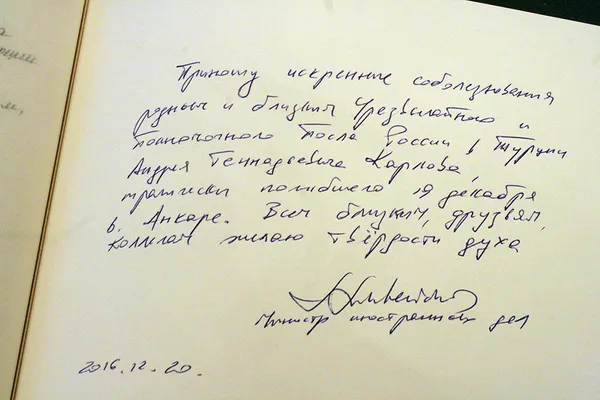 Приношу искренние соболезнования
родным и близким Чрезвычайного и
Полномочного Посла России в Турции
Андрея Геннадьевича Карлова,
трагически погибшего 19 декабря
в Анкаре. Всем близким, друзьям,
коллегам желаю твёрдости духа
Министр иностранных дел
2016.12.20.